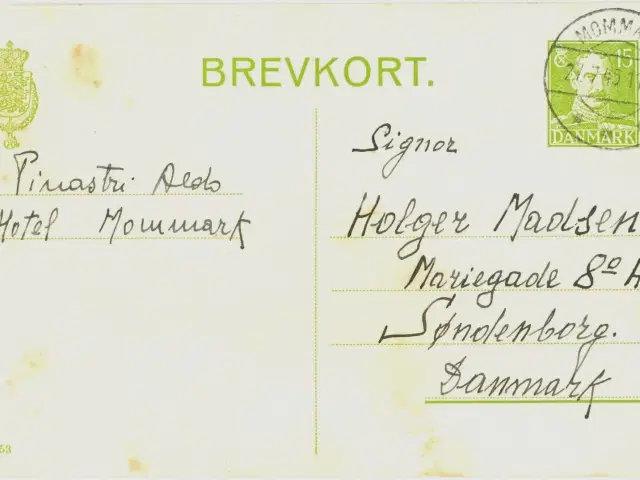 BREVKORT.
MOMMA
15
DANMARK
Signor
Pinastri Aldo
Hotel Mommark
Holger Madsen
Mariegade 8º A
Søndenborg.
Danmark
53